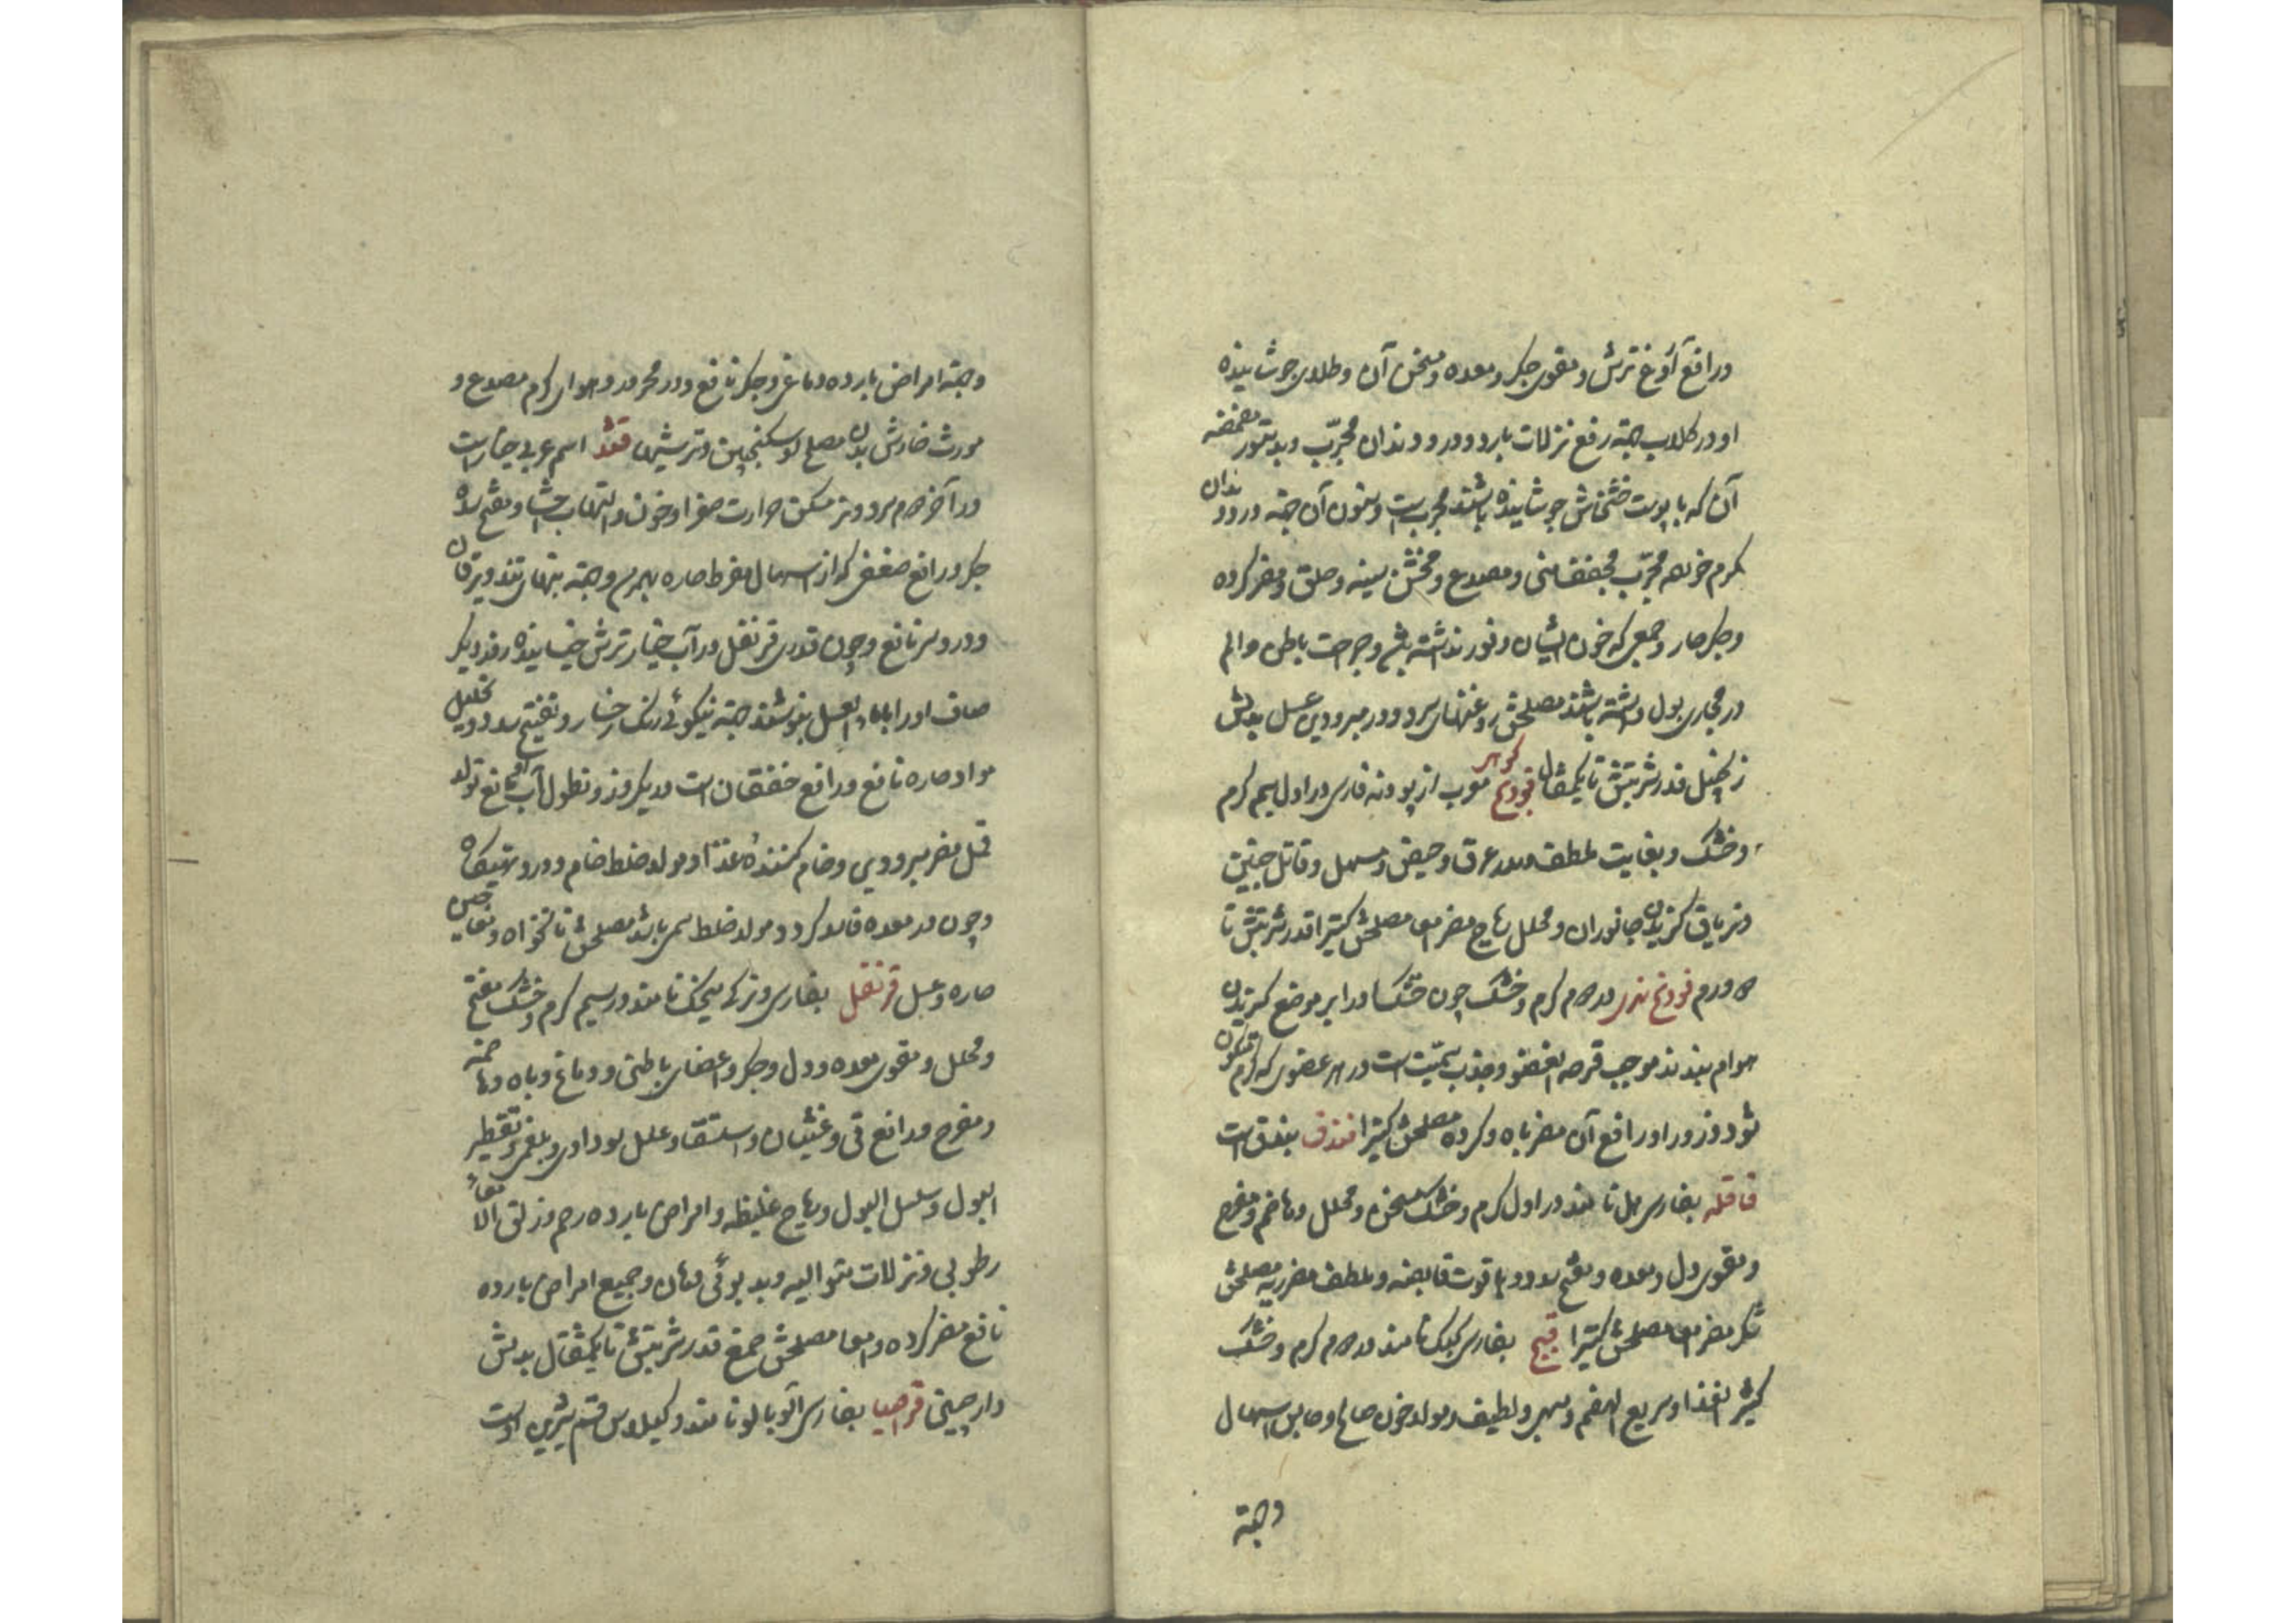 ورافع آروغ ترش و مقوی جگر و معده و مسخن آن و طلای جوشانیده
او در کلاب جهته رفع نزلات بارد و درد دندان مجرّب و بدستور مضمضه
آن که با پوست خشخاش جوشانیده باشند مجرب است و سنون آن جهته درد دندان
کرم خورده مجرّب مجفف منی و مصدع و مخشن سینه و حلق و مضر کرده
و جگر حار و جمعی که خون ایشان وفور نداشته باشد و جراحت باطن و الم
در مجاری بول داشته باشند مصلحش روغنهای سرد و در مبرودین عسل بدلش
زنجبیل قدر شربتش تا یکمثقال فودنج معرب از پودنه فارسی در اول سیم کرم
و خشک و بغایت ملطف و مدر عرق و حیض و مسهل و قاتل جنین
و تریاق کزیدن جانوران و محلل ریاح مضر امعا مصلحش کتیرا قدر شربتش تا
درم فودنج بری در دوم کرم و خشک چون خشک او را بر موضع کزیدن
هوام بندند موجب قرحه العضو و جذب سمّیت است در هر عضوی که کرم متکون
شود ذرور او رافع آن مضر باه و کرده مصلحش کتیرا فندق بندق است
قاقله بفارسی هل نامند در اول کرم و خشک مسخن و محلل و هاضم و مفرح
و مقوی دل و معده و مفتح سدد و با قوت قابضه و ملطف مضر ریه مصلحش
شکر مضر امعا مصلحش کتیرا قبج بفارسی کبک نامند در دوم کرم و خشک
کثیر الغذا و سریع الهضم و مسهر و لطیف و مولد خون صالح و حابس اسهال
وجهته
وجهته امراض بارده دماغی و جگر نافع و در محرور و هوای کرم مصدع و
مورث خارش بدن مصلح او سکنجبین و ترشیها قثد اسم عربی خیار است
در آخر دوم سرد و تر مسکن حرارت صفرا و خون و التهاب احشا و مفتح سده
جگر و رافع ضعفی که از اسهال مفرط حاره بهم رسد و جهته تبهای تند و یرقان
و درد سر نافع و چون قدری قرنفل در آب خیار ترش خیسانیده روز دیگر
صاف او را با ماء العسل بنوشند جهته نیکوئی رنک رخسار و تفتیح سدد و تحلیل
مواد حاره نافع و رافع خفقان است در یکروز و نطول آب او مانع تولد
قمل مضر مبرودین و خام کننده غذا و مولد خلط خام و درد تهیکاه
و چون در معده فاسد کردد مولد خلط سمی باشد مصلحش نانخواه و معاجین
حاره و عسل قرنفل بفارسی و ترکی میخک نامند در سیم کرم و خشک مفتح
و محلل و مقوی معده و دل و جگر و اعضای باطنی و دماغ و باه و هاضمه
و مفرح و رافع قی و غثیان و استسقا و علل سوداوی و بلغمی و تقطیر
البول و سلس البول و ریاح غلیظه و امراض بارده رحم و زلق الامعاء
رطوبی و نزلات متوالیه و بدبوئی دهان و جمیع امراض بارده
نافع مضر کرده و امعا مصلحش صمغ قدر شربتش تا یکمثقال بدلش
دارچینی قراصیا بفارسی آلوبالو نامند و کیلاس قسم شیرین اوست